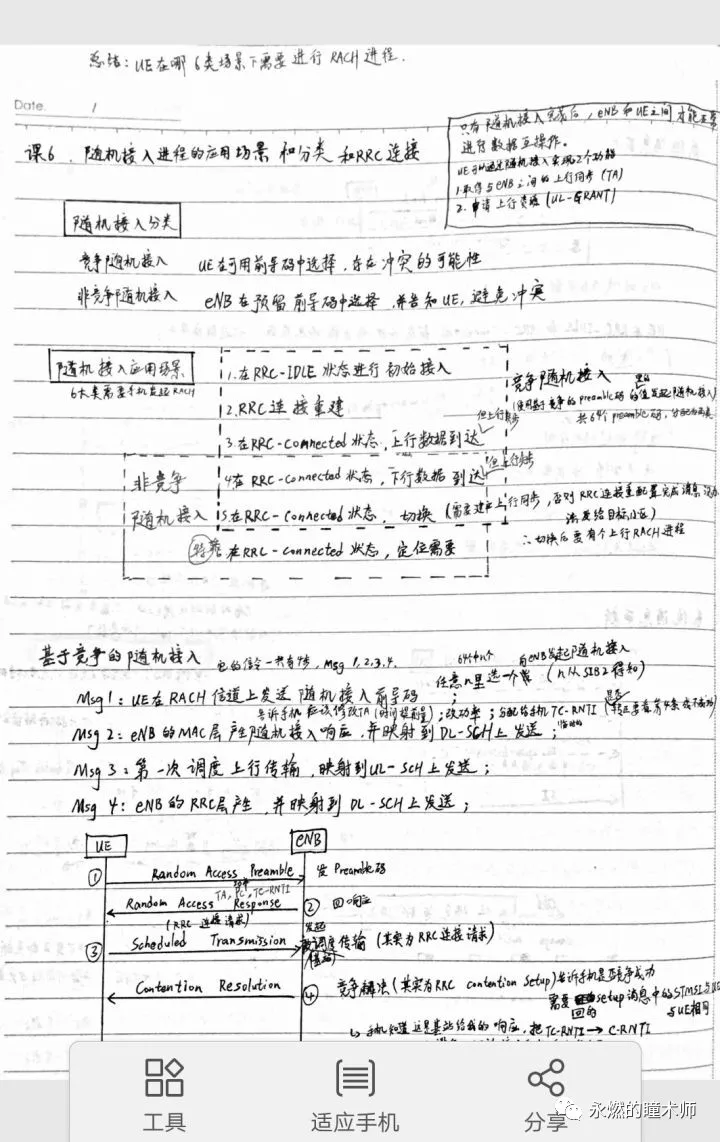 总结：UE在哪6类场景下需要进行RACH进程.
Date. /
只有随机接入完成后，eNB和UE之间才能正常
进行数据互操作。
UE可以通过随机接入实现2个功能
1.取得与eNB之间的上行同步（TA）
2.申请上行资源（UL-GRANT）
课6、随机接入进程的应用场景和分类和RRC连接
随机接入分类
竞争随机接入 UE在可用前导码中选择，存在冲突的可能性
非竞争随机接入 eNB在预留前导码中选择，并告知UE，避免冲突
随机接入应用场景
6大类需要手机发起RACH
1.在RRC-IDLE状态进行初始接入
2.RRC连接重建
3.在RRC-Connected状态，上行数据到达
但上行失步
竞争随机接入
（使用基于竞争的preamble码的值发起随机接入）
共64个preamble码，分配为两类
非竞争
随机接入
4在RRC-Connected状态，下行数据到达
但上行失步
5.在RRC-Connected状态，切换（需要建立上行同步，否则RRC连接重配置完成消息没办
法发给目标小区）
∴切换后要有个上行RACH进程
特需 在RRC-connected状态，定位需要
基于竞争的随机接入 它的信令一共有4步，Msg 1,2,3,4.
64个中n个 向eNB发起随机接入
任意n里选一个 （n从SIB2得知）
Msg 1：UE在RACH信道上发送随机接入前导码；
告诉手机应该修改TA（时间提前量）；改功率；分配给手机TC-RNTI
临时的
Msg 2：eNB的MAC层产生随机接入响应，并映射到DL-SCH上发送；
Msg 3：第一次调度上行传输，映射到UL-SCH上发送；
Msg 4：eNB的RRC层产生，并映射到DL-SCH上发送；
UE eNB
① Random Access Preamble 发Preamble码
TA, PC, TC-RNTI
Random Access Response ② 回响应
（RRC连接请求）
③ Scheduled Transmission 调度传输（其实为RRC连接请求）
Contention Resolution ④ 竞争解决（其实为RRC contention Setup）告诉手机是否竞争成功
需要回的setup消息中的STMSI与UE
与UE相同
↳手机知道这是基站给我的响应，把TC-RNTI→C-RNTI
工具
适应手机
分享
永燃的瞳术师